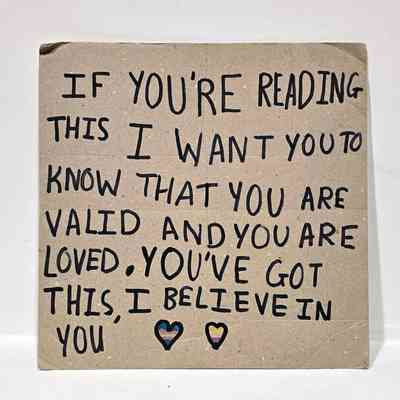 IF YOU'RE READING
THIS I WANT YOU TO
KNOW THAT YOU ARE
VALID AND YOU ARE
LOVED. YOU'VE GOT
THIS, I BELIEVE IN
YOU